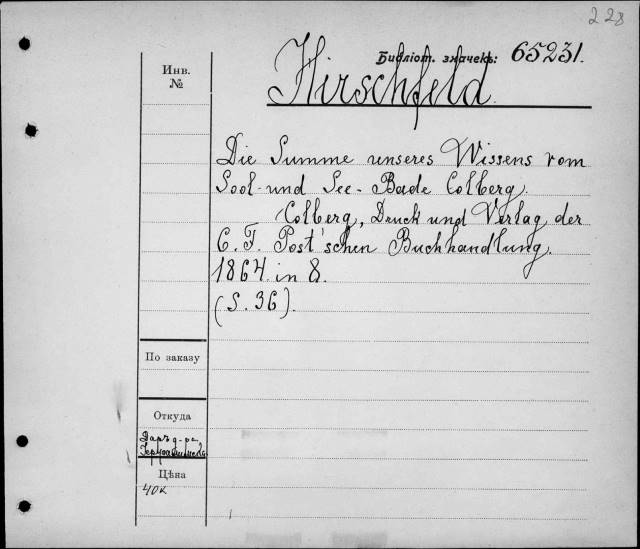 228
Библіот. значекъ: 65231.
Инв.
№
Hirschfeld.
Die Summe unseres Wissens vom
Sool- und See-Bade Colberg.
Colberg, Druck und Verlag der
C. F. Post'schen Buchhandlung.
1864. in 8.
(S. 36).
По заказу
Откуда
Даръ д-ра
Цѣна
40к